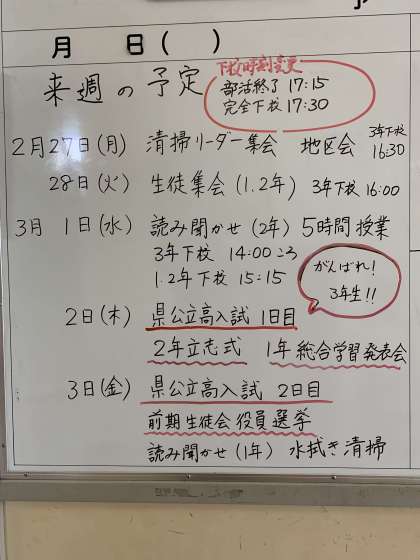 月 日( )
来週の予定
下校時刻変更
部活終了 17:15
完全下校 17:30
2月27日(月) 清掃リーダー集会 地区会 3年下校 16:30
28日(火) 生徒集会(1.2年) 3年下校 16:00
3月 1日(水) 読み聞かせ(2年) 5時間授業
3年下校 14:00ころ
1.2年下校 15:15
がんばれ!
3年生!!
2日(木) 県公立高入試 1日目
2年立志式 1年総合学習発表会
3日(金) 県公立高入試 2日目
前期生徒会役員選挙
読み聞かせ(1年) 水拭き清掃